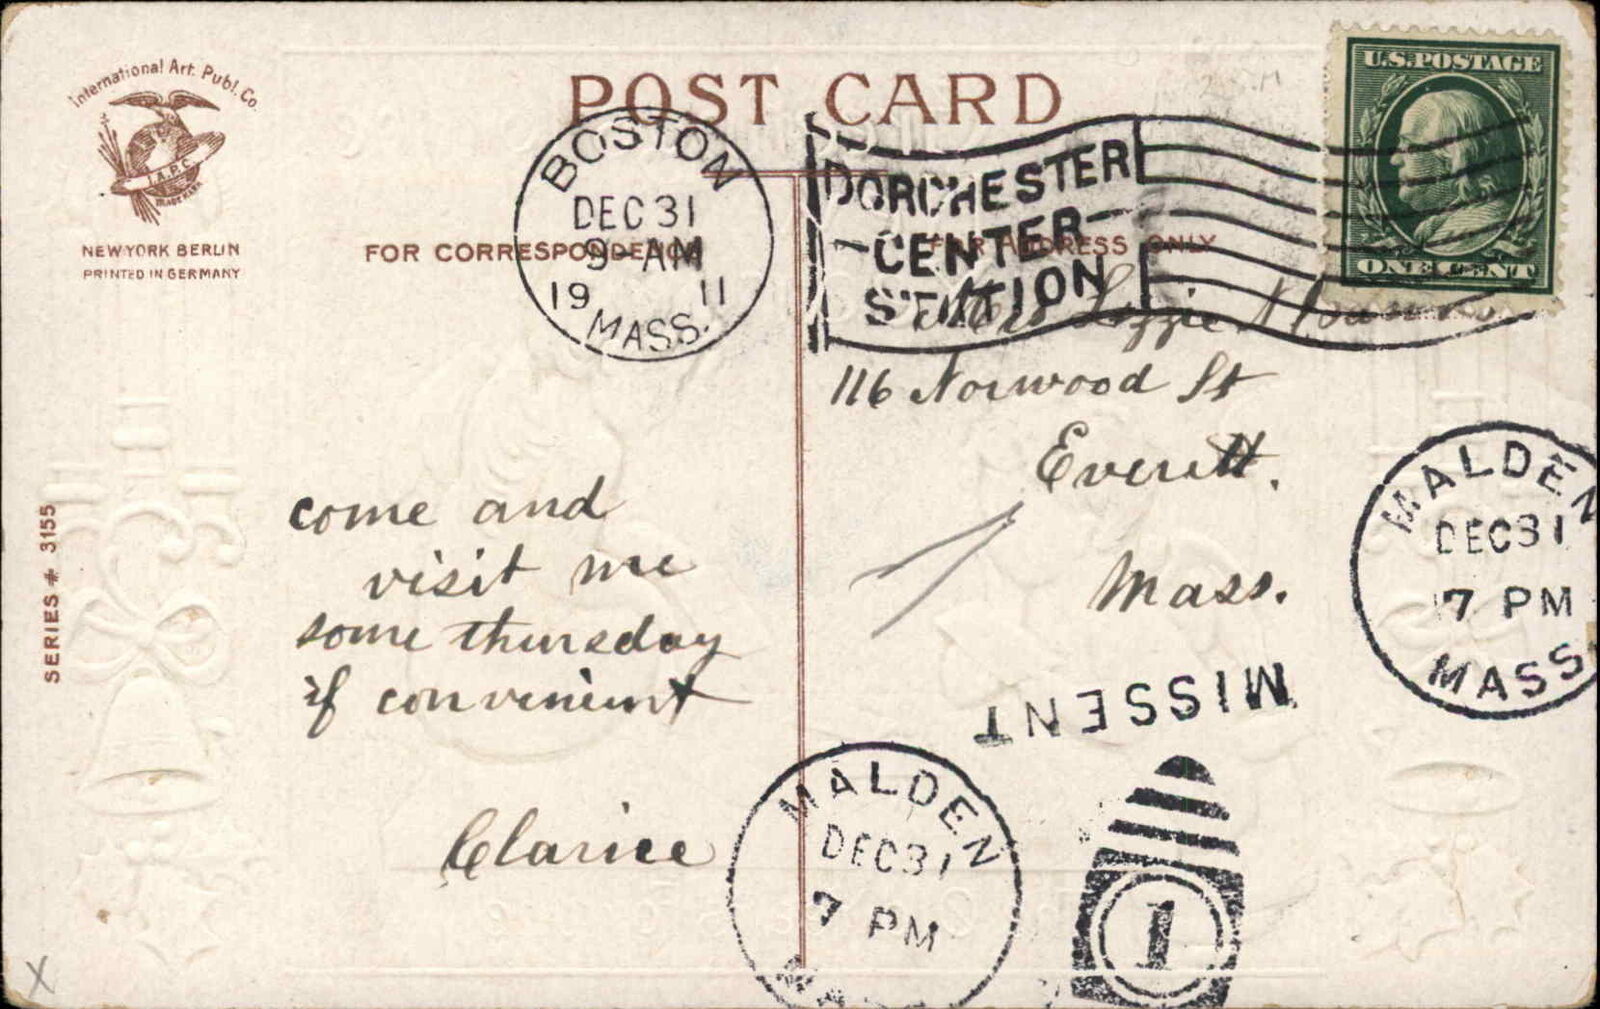 International Art. Publ. Co.
I.A.P.C.
TRADE MARK
NEW YORK BERLIN
PRINTED IN GERMANY
POST CARD
U.S. POSTAGE
ONE CENT
BOSTON
DEC 31
9-AM
19 11
MASS.
DORCHESTER
CENTER
STATION
FOR CORRESPONDENCE
FOR ADDRESS ONLY
Lizzie
116 Norwood St
Everett.
Mass.
SERIES # 3155
come and
visit me
some thursday
if convenient
Clarice
MALDEN
DEC 31
7 PM
MASS
MISSENT
MALDEN
DEC 31
7 PM
MA
1
X